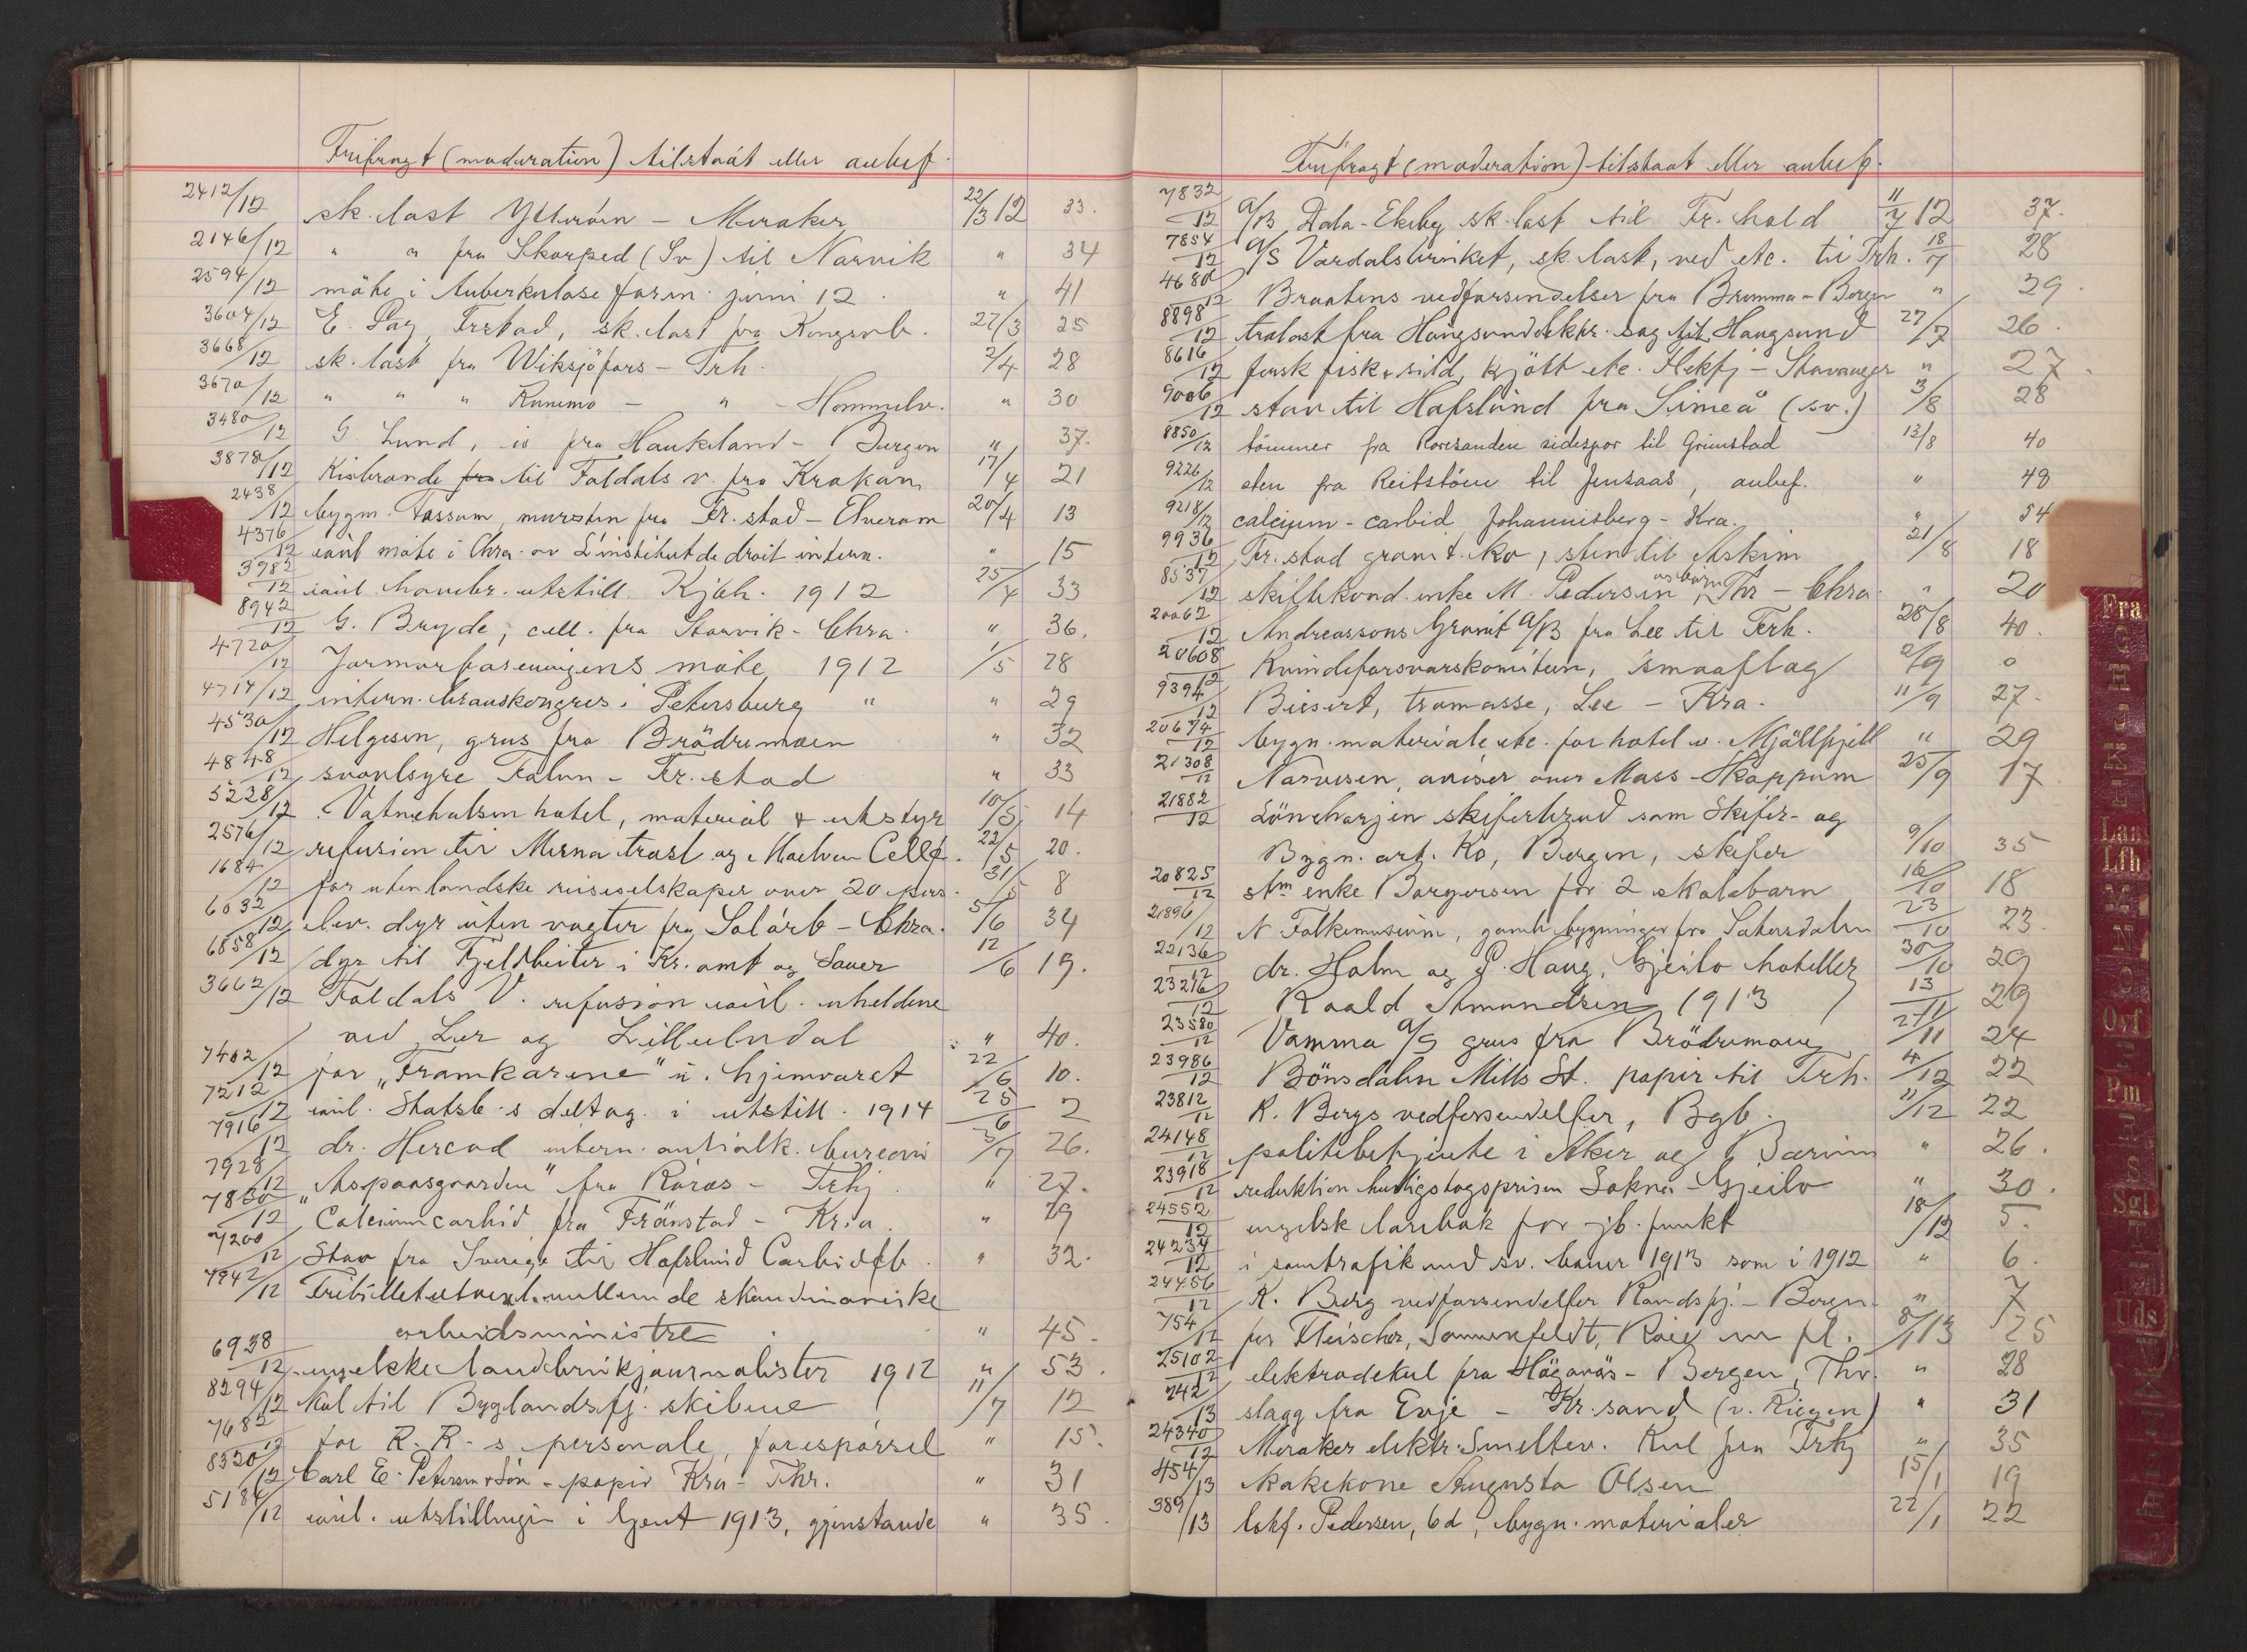 Frifragt (moderation) tilstaat eller anbef.
2412/12 sk. last Ytterøen - Meraker 22/3 12 33.
2146/12 " " fra Skorped (Sv) til Narvik " 34
2594/12 möte i Tuberkulose foren. juni 12. " 41
3604/12 E. Dag, Frstad, sk. last fra Kongsvb. 27/3 25
3668/12 sk. last fra Wiksjöfors - Trh. 2/4 28
3670/12 " " " Runemo - " - Hommelv. " 30
3480/12 G. Lund, is fra Haukeland - Bergen " 37.
3878/12 Kisbrande fra til Foldals v. fra Krokan 17/4 21
2438/12 bygm. Fossum, mursten fra Fr. stad - Elverum 20/4 13
4376/12 möte i Chra. av L'institut de droit intern. " 15
3982/12 utstill. Kjbh. 1912 25/4 33
8942/12 G. Bryde, cell. fra Storvik - Chra. " 36.
4720/12 möte 1912 1/5 28
4714/12 intern. kongres i Petersburg " " 29
4530/12 Helgesen, grus fra Brödremoen " 32
4848/12 svovlsyre Falun - Fr. stad " 33
5228/12 Vatnehalsen hotel, material & utstyr 10/5 14
2576/12 refusion til Mesna træsl. og Maelven Cell. 22/5 20.
1684/12 for utenlandske reiseselskaper over 20 pers. 31/5 8
6032/12 lev. dyr uten vogter fra Solörb - Chra. 5/6 34
6858/12 dyr til Fjeldbeiter i Kr. amt og Sauer 12/6 19.
3662/12 Foldals V. refusion uheldene
ved Lur og Lilleelvdal " 40.
7402/12 for „Framkarene" v. hjemvaret 22/6 10.
7212/12 Statsb-s deltag. i utstill. 1914 25/6 2
7916/12 dr. Hercod intern. antialk. bureau 3/7 26.
7928/12 „Aspaasgaarden" fra Röros - Trhj. " 27.
7830/12 Calciumcarbid fra Frånstad - Kr.a. " 29
7200/12 Stav fra Sverige til Hafslund Carbidfb. " 32.
7942/12 Fribilletutvexl. mellem de skandinaviske
arbeidsministre " 45.
6938/12 engelske landbrukjournalister 1912 " 53.
8294/12 kol til Byglandsfj. skibene 11/7 12
7682/12 for R.R-s personale, forespörsel " 15.
8320/12 Carl E. Petersen & Sön - papir Kra - Thr. " 31
5184/12 utstillingen i Gent 1913, gjenstande " 35.
Frifragt (moderation) tilstaat eller anbef.
7832/12 A/B Dala-Ekeby sk. last til Fr. hald 11/7 12 37.
7854/12 A/S Værdalsbruket, sk. last, ved etc. til Trh. 18/7 28
4680/12 Braatens vedforsendelser fra Bromma - Bergen " 29.
8898/12 tralast fra Haugsund elektr. sag til Haugsund 27/7 26.
8616/12 fersk fisk & sild, kjött etc. Flekkfj - Stavanger " 27.
9006/12 stav til Hafslund fra Simeå (sv.) 3/8 28
8850/12 tömmer fra Roresanden sidespor til Grimstad 13/8 40
9226/12 sten fra Reitstöen til Jensaas, anbef. " 48
9218/12 calcium-carbid Johannisberg - Kra. " 54
9936/12 Fr. stad granit. ko, sten til Askim 21/8 18
8537/12 skiftekond. enke M. Pedersen og börn Thr - Chra. " 20
20062/12 Andreassons Granit A/B fra Lee til Frh. 28/8 40.
20608/12 Kvindeforsvarskomiteen, smaaflag 2/9 0
9394/12 Biesert, træmasse, Lee - Kra. 11/9 27.
20674/12 bygn. materiale etc. for hotel v. Mjölfjell " 29
21308/12 Narvesen, aviser over Moss - Skoppum 25/9 17
21882/12 Löneharjen skiferbrud som Skifer- og
Bygn. art. Ko, Bergen, skifer 9/10 35
20825/12 stm enke Borgersen for 2 skolebarn 16/10 18
21896/12 N Folkemuseum, gamle bygninger fra Sætersdalen 23/10 23.
22136/12 dr. Holm og P. Haug, Gjeilo hoteller 30/10 29
23216/12 Roald Amundsen 1913 13/11 29
23580/12 Vamma A/S grus fra Brödremoen 27/11 24
23986/12 Bönsdalen Mills St. papir til Frh. 4/12 22
23812/12 K. Bergs vedforsendelser, Bgb. 11/12 22
24148/12 politibetjente i Aker og Bærum " 26.
23918/12 reduktion hurtigtogsprisen Sokna - Gjeilo " 30.
24552/12 engelsk lærebok for jb. funkt 18/12 5.
24234/12 i samtrafik med sv. baner 1913 som i 1912 " 6.
24456/12 K. Berg vedforsendelser Randsfj. - Bergen " 7
754/12 for Fleischer, Sommerfeldt, Roie m fl. 8/1 13 25
25102/12 elektrodekul fra Höganäs - Bergen, Thr. " 28
242/13 slagg fra Evje - Kr. sand (v. Riegen) " 31
24340/12 Meraker elektr. Smeltev. Kul fra Trhj " 35
454/13 kokekone Augusta Olsen 15/1 19
389/13 lokf. Pedersen, 6d, bygn. materialer 22/1 22
Fra
G
H
J
K
L
Laa
Lfh
M
N
O
Ovf
P
Pm
R
S
Sgl
T
Uds